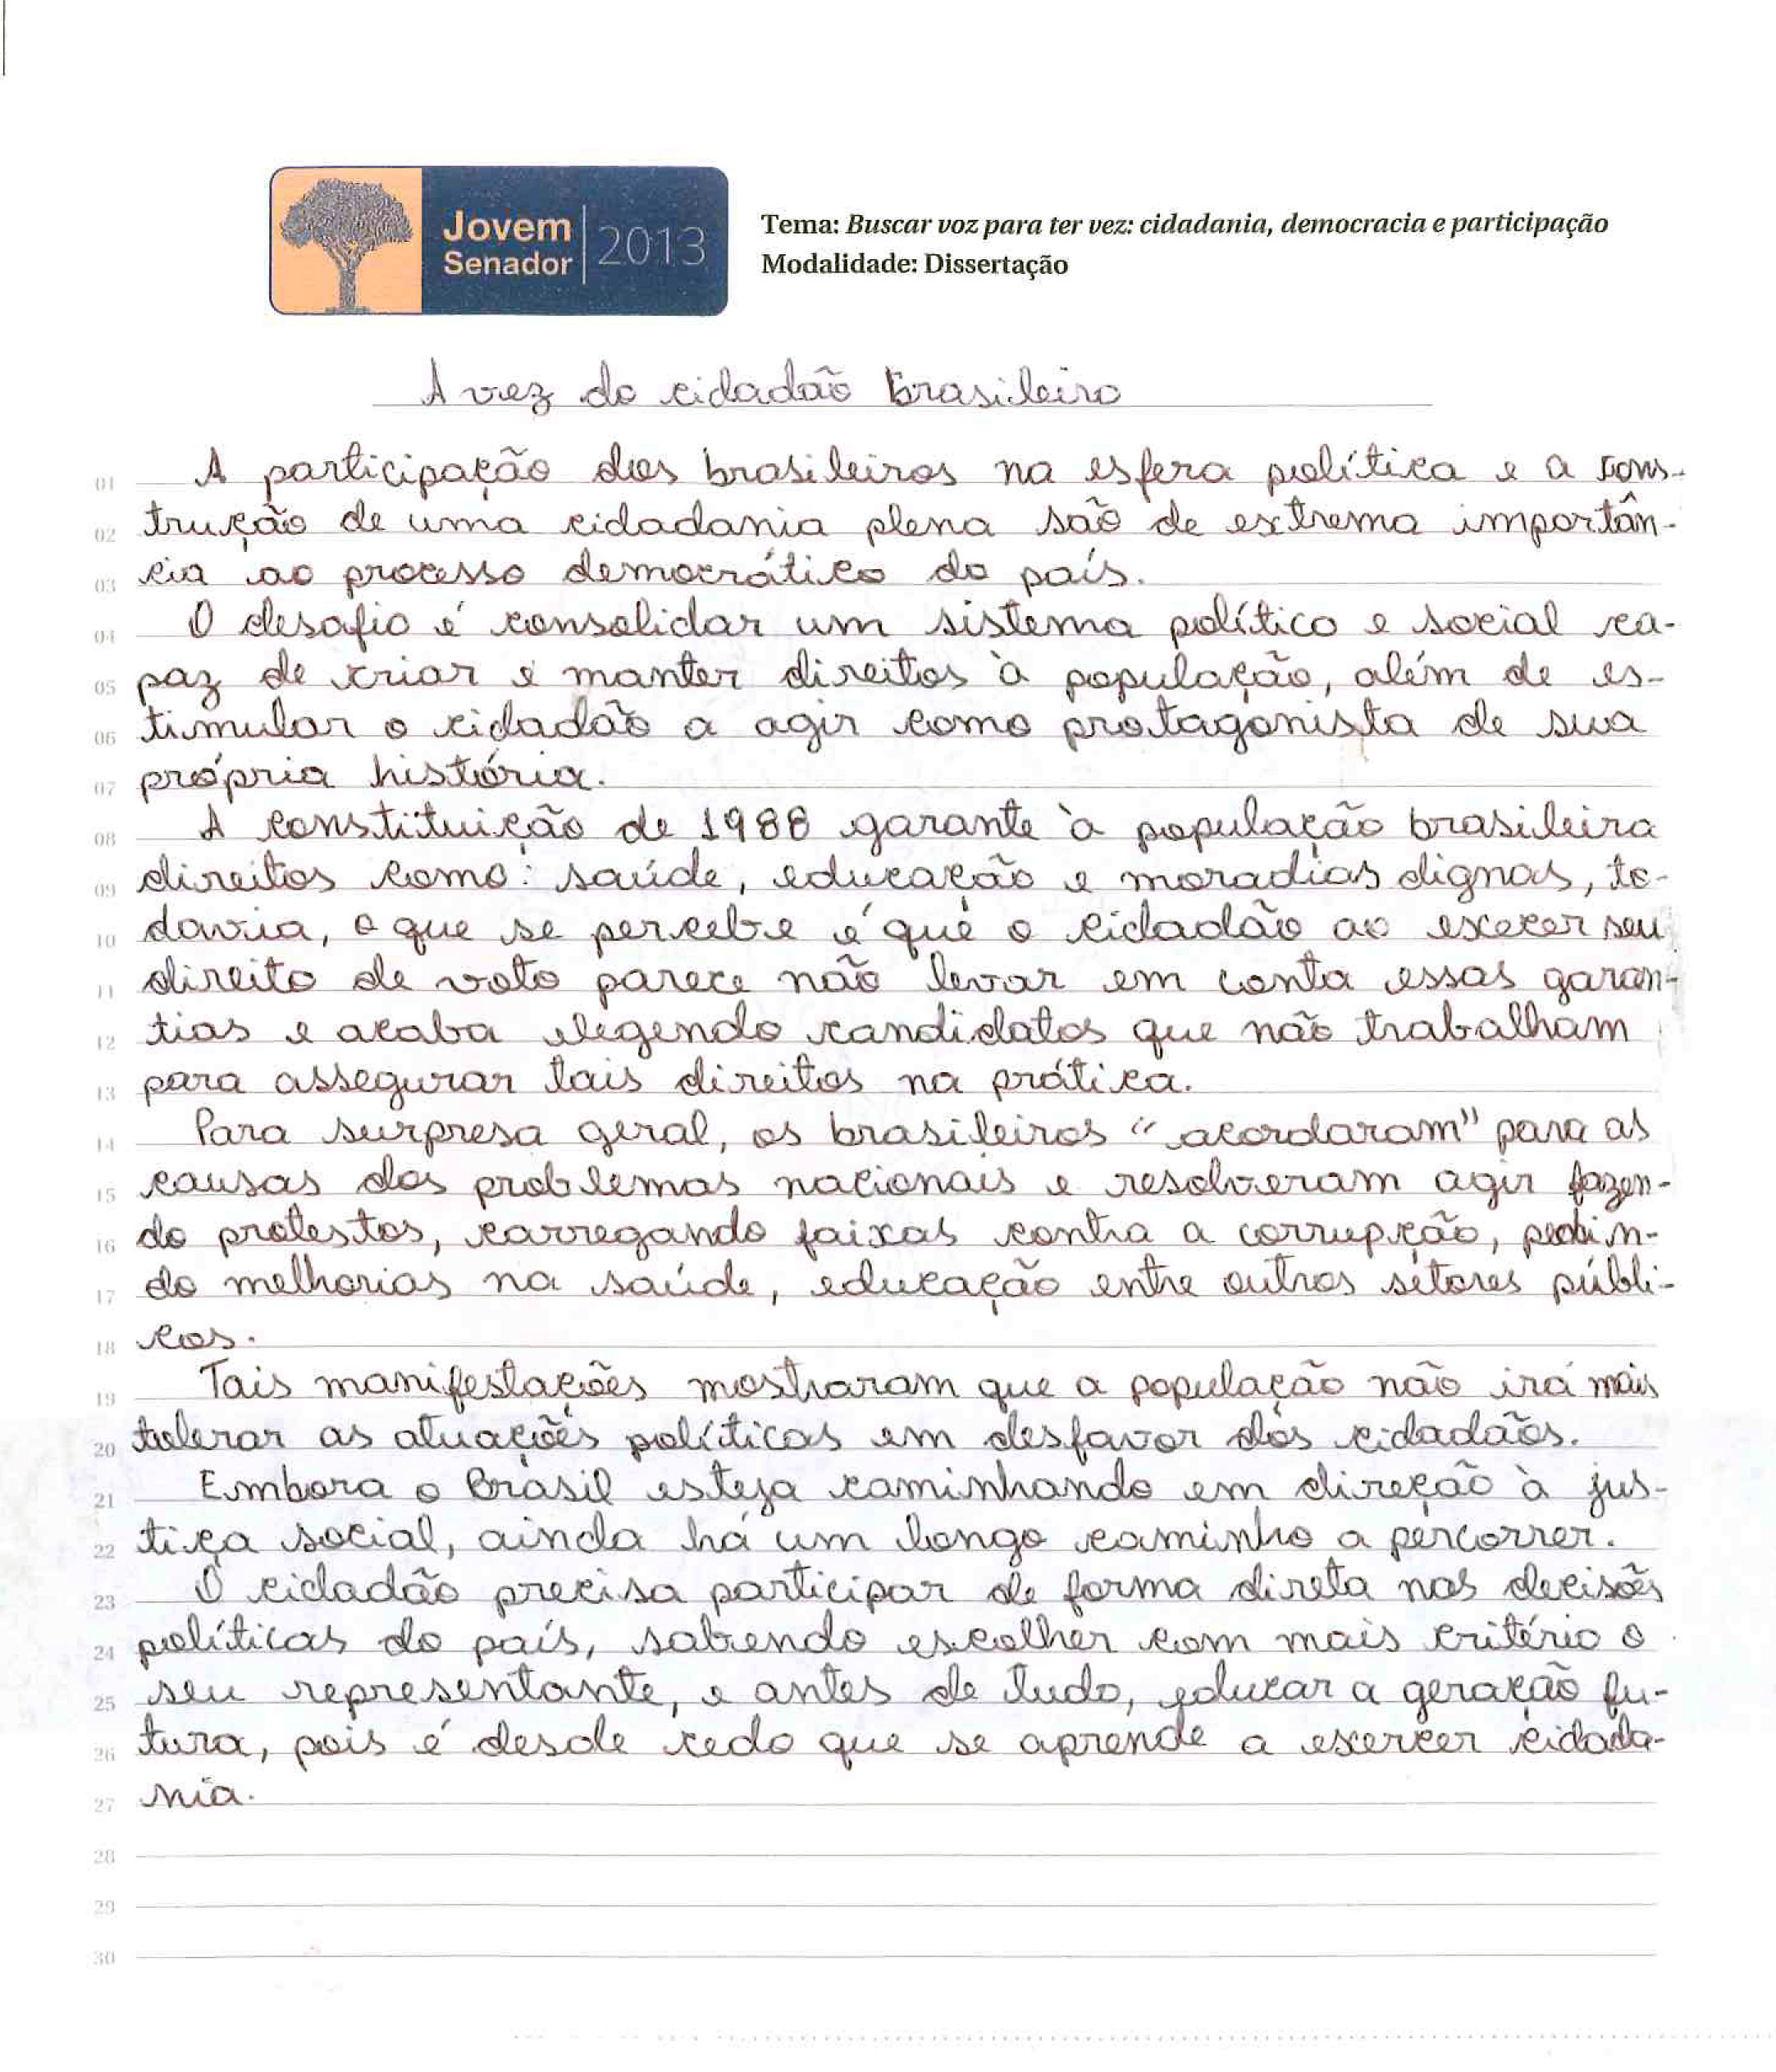 Jovem
Senador
2013
Tema: Buscar voz para ter vez: cidadania, democracia e participação
Modalidade: Dissertação
A vez do cidadão Brasileiro
01 A participação dos brasileiros na esfera política e a cons-
02 trução de uma cidadania plena são de extrema importân-
03 cia ao processo democrático do país.
04 O desafio é consolidar um sistema político e social ca-
05 paz de criar e manter direitos à população, além de es-
06 timular o cidadão a agir como protagonista de sua
07 própria história.
08 A constituição de 1988 garante à população brasileira
09 direitos como: saúde, educação e moradias dignas, to-
10 davia, o que se percebe é que o cidadão ao exercer seu
11 direito de voto parece não levar em conta essas garan-
12 tias e acaba elegendo candidatos que não trabalham
13 para assegurar tais direitos na prática.
14 Para surpresa geral, os brasileiros "acordaram" para as
15 causas dos problemas nacionais e resolveram agir fazen-
16 do protestos, carregando faixas contra a corrupção, pedin-
17 do melhorias na saúde, educação entre outros setores públi-
18 cos.
19 Tais manifestações mostraram que a população não irá mais
20 tolerar as atuações políticas em desfavor dos cidadãos.
21 Embora o Brasil esteja caminhando em direção à jus-
22 tiça social, ainda há um longo caminho a percorrer.
23 O cidadão precisa participar de forma direta nas decisões
24 políticas do país, sabendo escolher com mais critério o
25 seu representante, e antes de tudo, educar a geração fu-
26 tura, pois é desde cedo que se aprende a exercer cidada-
27 nia.
28
29
30